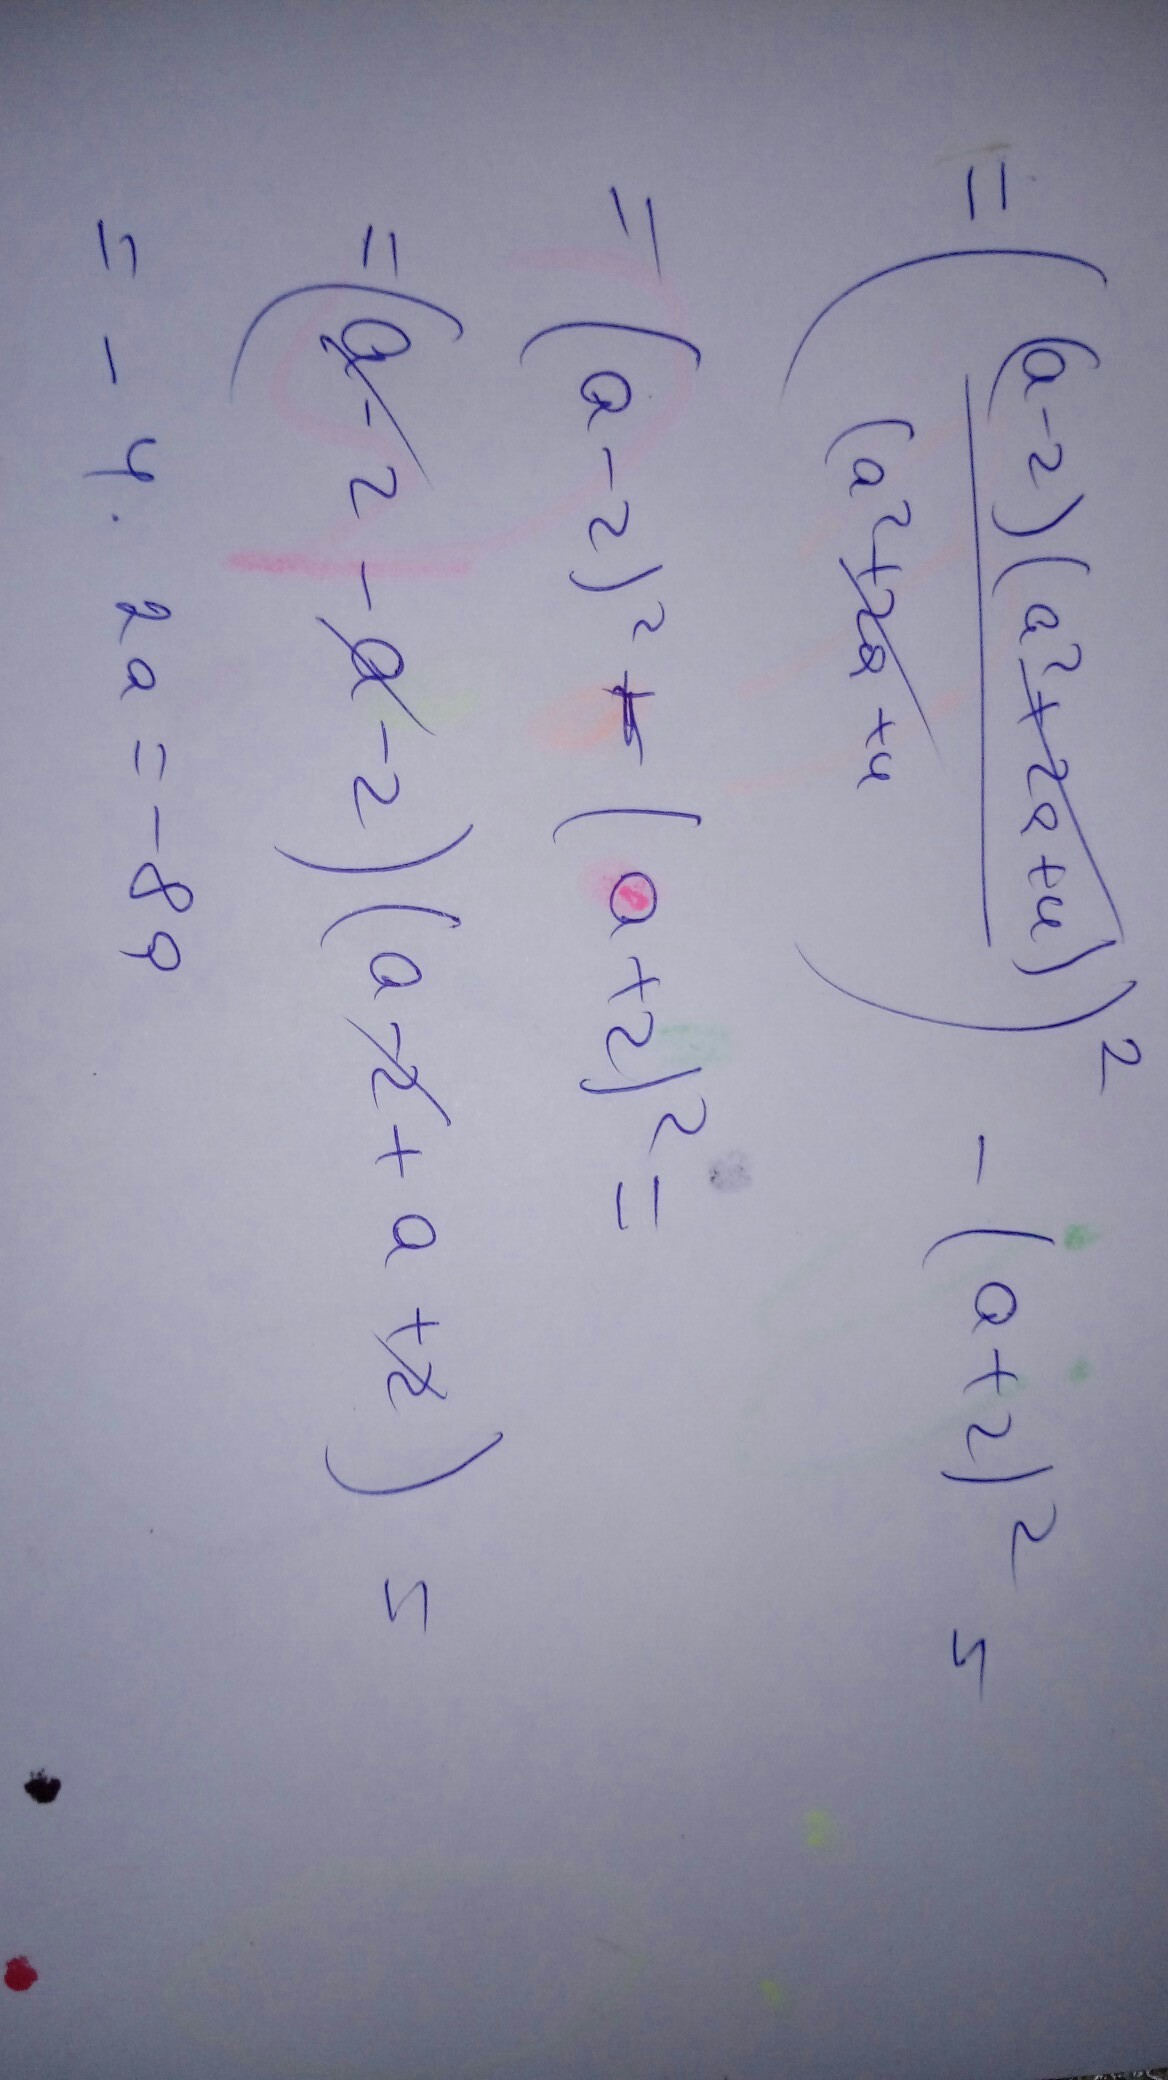 = ((a-2)(a²+2a+4)
(a²+2a+4))² - (a+2)² =
= (a-2)² - (a+2)² =
= (a-2-a-2)(a-2+a+2) =
= -4. 2a = -8a